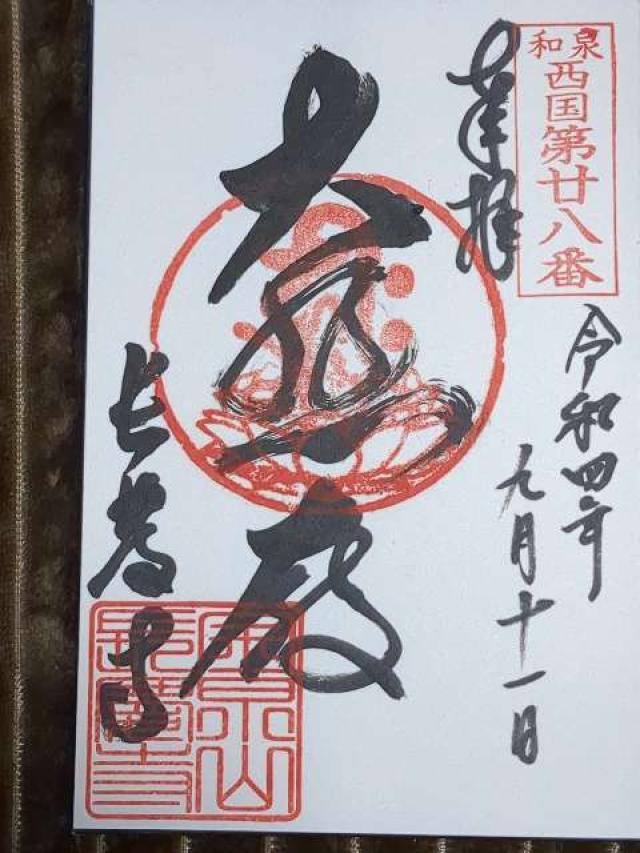 和泉
西国第廿八番
奉拝
令和四年
九月十一日
大悲殿
長慶寺